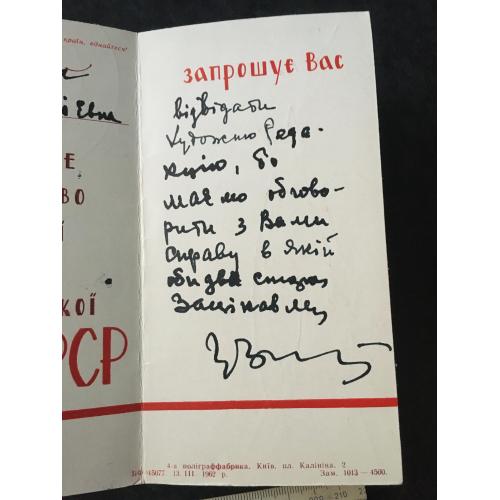 країн, єднайтеся!
запрошує Вас
відвідати
художню Реда-
кцію, бо
маємо обгово-
рити з Вами
справу в якій
обидві сторони
Зацікавлені
КОЇ
РСР
4-а поліграффабрика. Київ, пл. Калініна, 2
БФ 15077 13. III. 1962 р. Зам. 1013 — 4500.